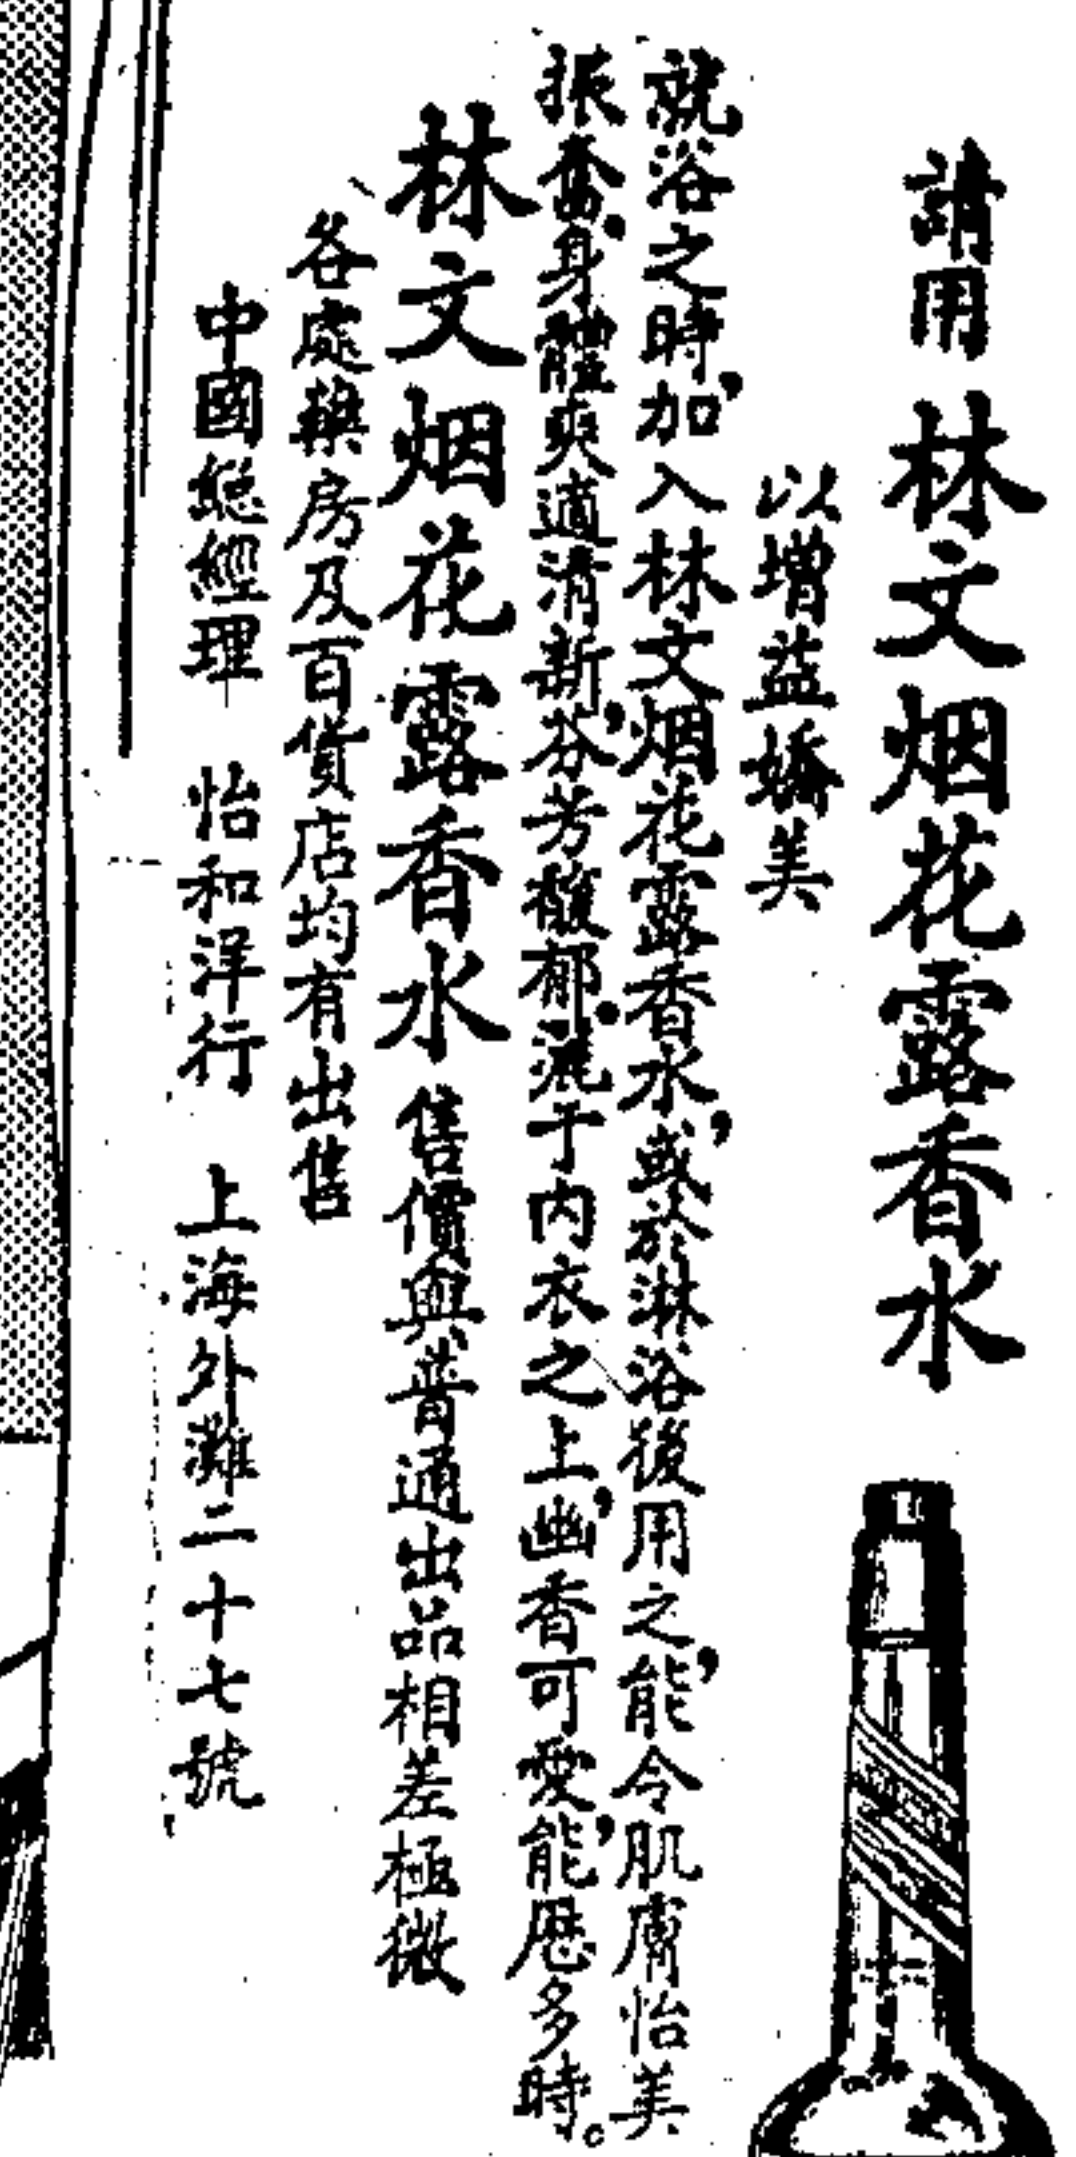 請用 林文烟花露香水
以增益嬌美
就浴之時，加入林文烟花露香水，或於淋浴後用之，能令肌膚怡美
振奮，身體爽適清新，芬芳馥郁。洒于内衣之上，幽香可愛，能歷多時。
林文烟花露香水 售價與普通出品相差極微
各處藥房及百貨店均有出售
中國總經理 怡和洋行 上海外灘二十七號